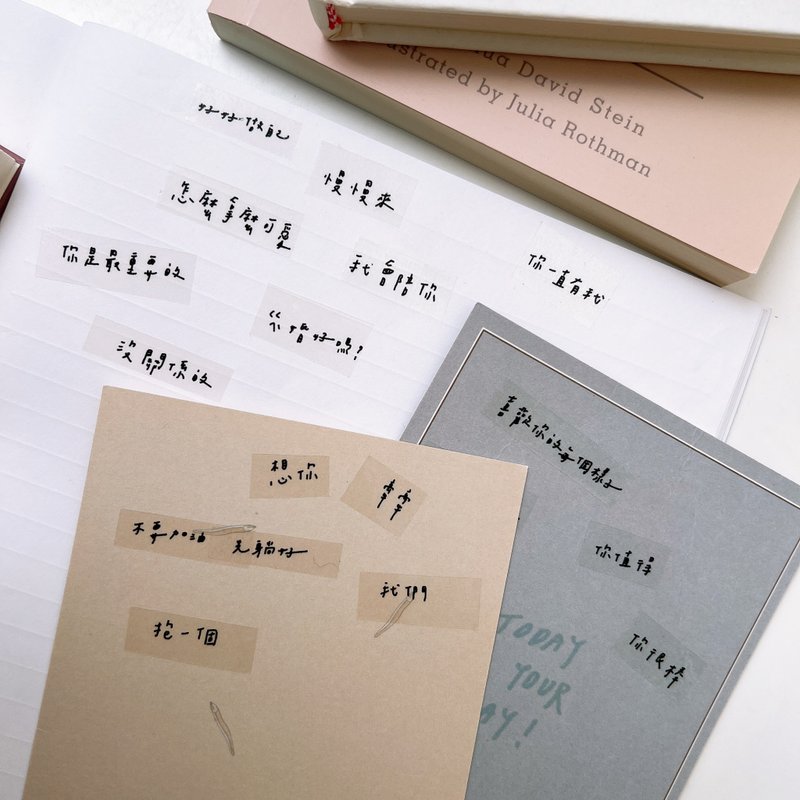 David Stein
by Julia Rothman
好好做自己
慢慢來
怎麼拿麼可愛
你是最重要的
我會陪你
你一直有我
好嗎?
沒關係的
喜歡你的每個樣子
想你
不要加油 先躺好
你值得
我們
抱一個
你很棒
TODAY
YOUR